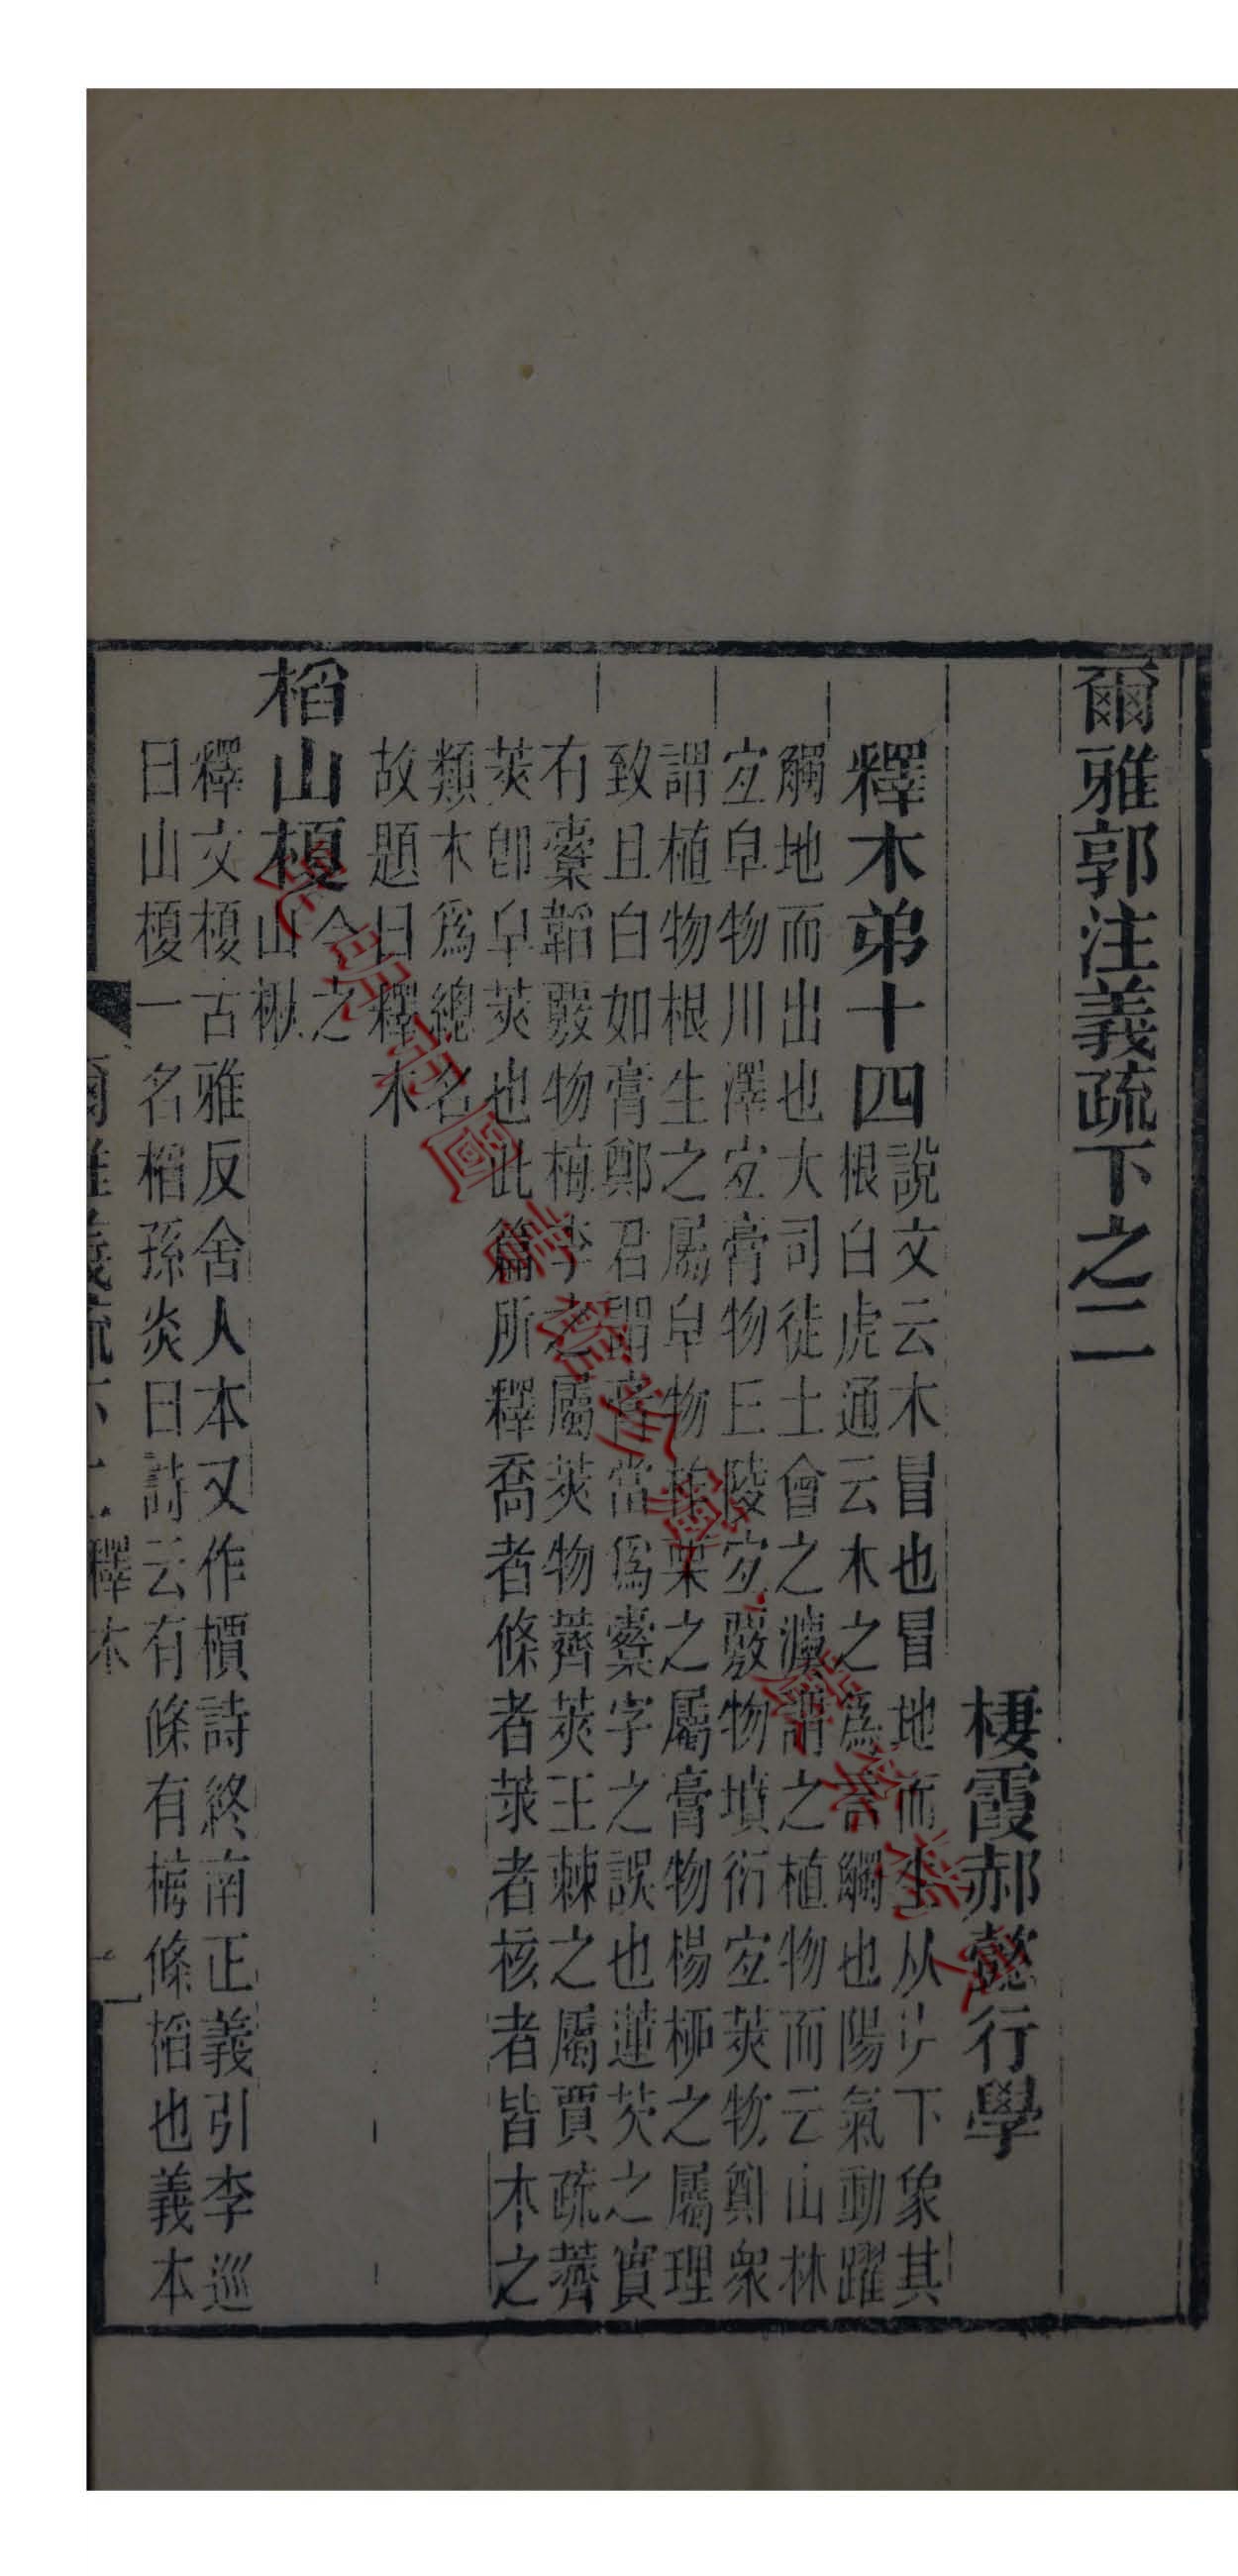 爾雅郭注義疏下之二
棲霞郝懿行學
釋木弟十四
說文云木冒也冒地而生从屮下象其
根白虎通云木之爲言觸也陽氣動躍
觸地而出也大司徒土會之灋謂之植物而云山林
宐皁物川澤宐膏物丘陵宐覈物墳衍宐莢物鄭衆
謂植物根生之屬皁物柞栗之屬膏物楊柳之屬理
致且白如膏鄭君謂膏當爲櫜字之誤也蓮芡之實
有櫜韜覈物梅李之屬莢物薺莢王棘之屬賈疏薺
莢卽皁莢也此篇所釋喬者條者莍者核者皆木之
類木爲總名
故題曰釋木
槄山榎
今之
山楸
釋文榎古雅反舍人本又作檟詩終南正義引李巡
曰山榎一名槄孫炎曰詩云有條有梅條槄也義本
爾雅義疏下之二釋木
一